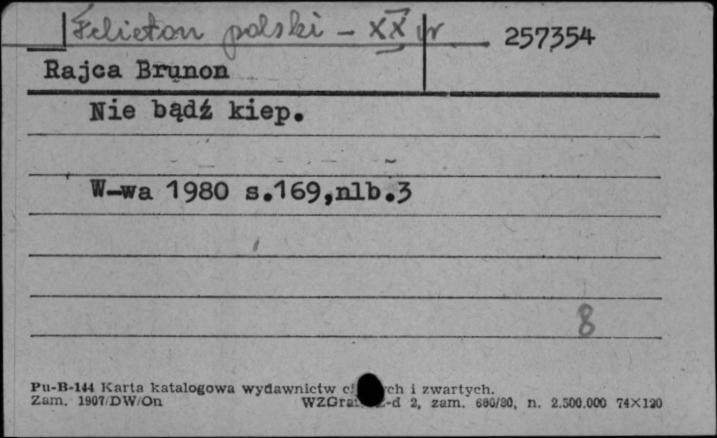 Felieton polski - XX w 257354
Rajca Brunon
Nie bądź kiep.
W-wa 1980 s.169,nlb.3
8
Pu-B-144 Karta katalogowa wydawnictw ch i zwartych.
Zam. 1907/DW/On WZGraf. -d 2, zam. 680/80, n. 2.500.000 74×120